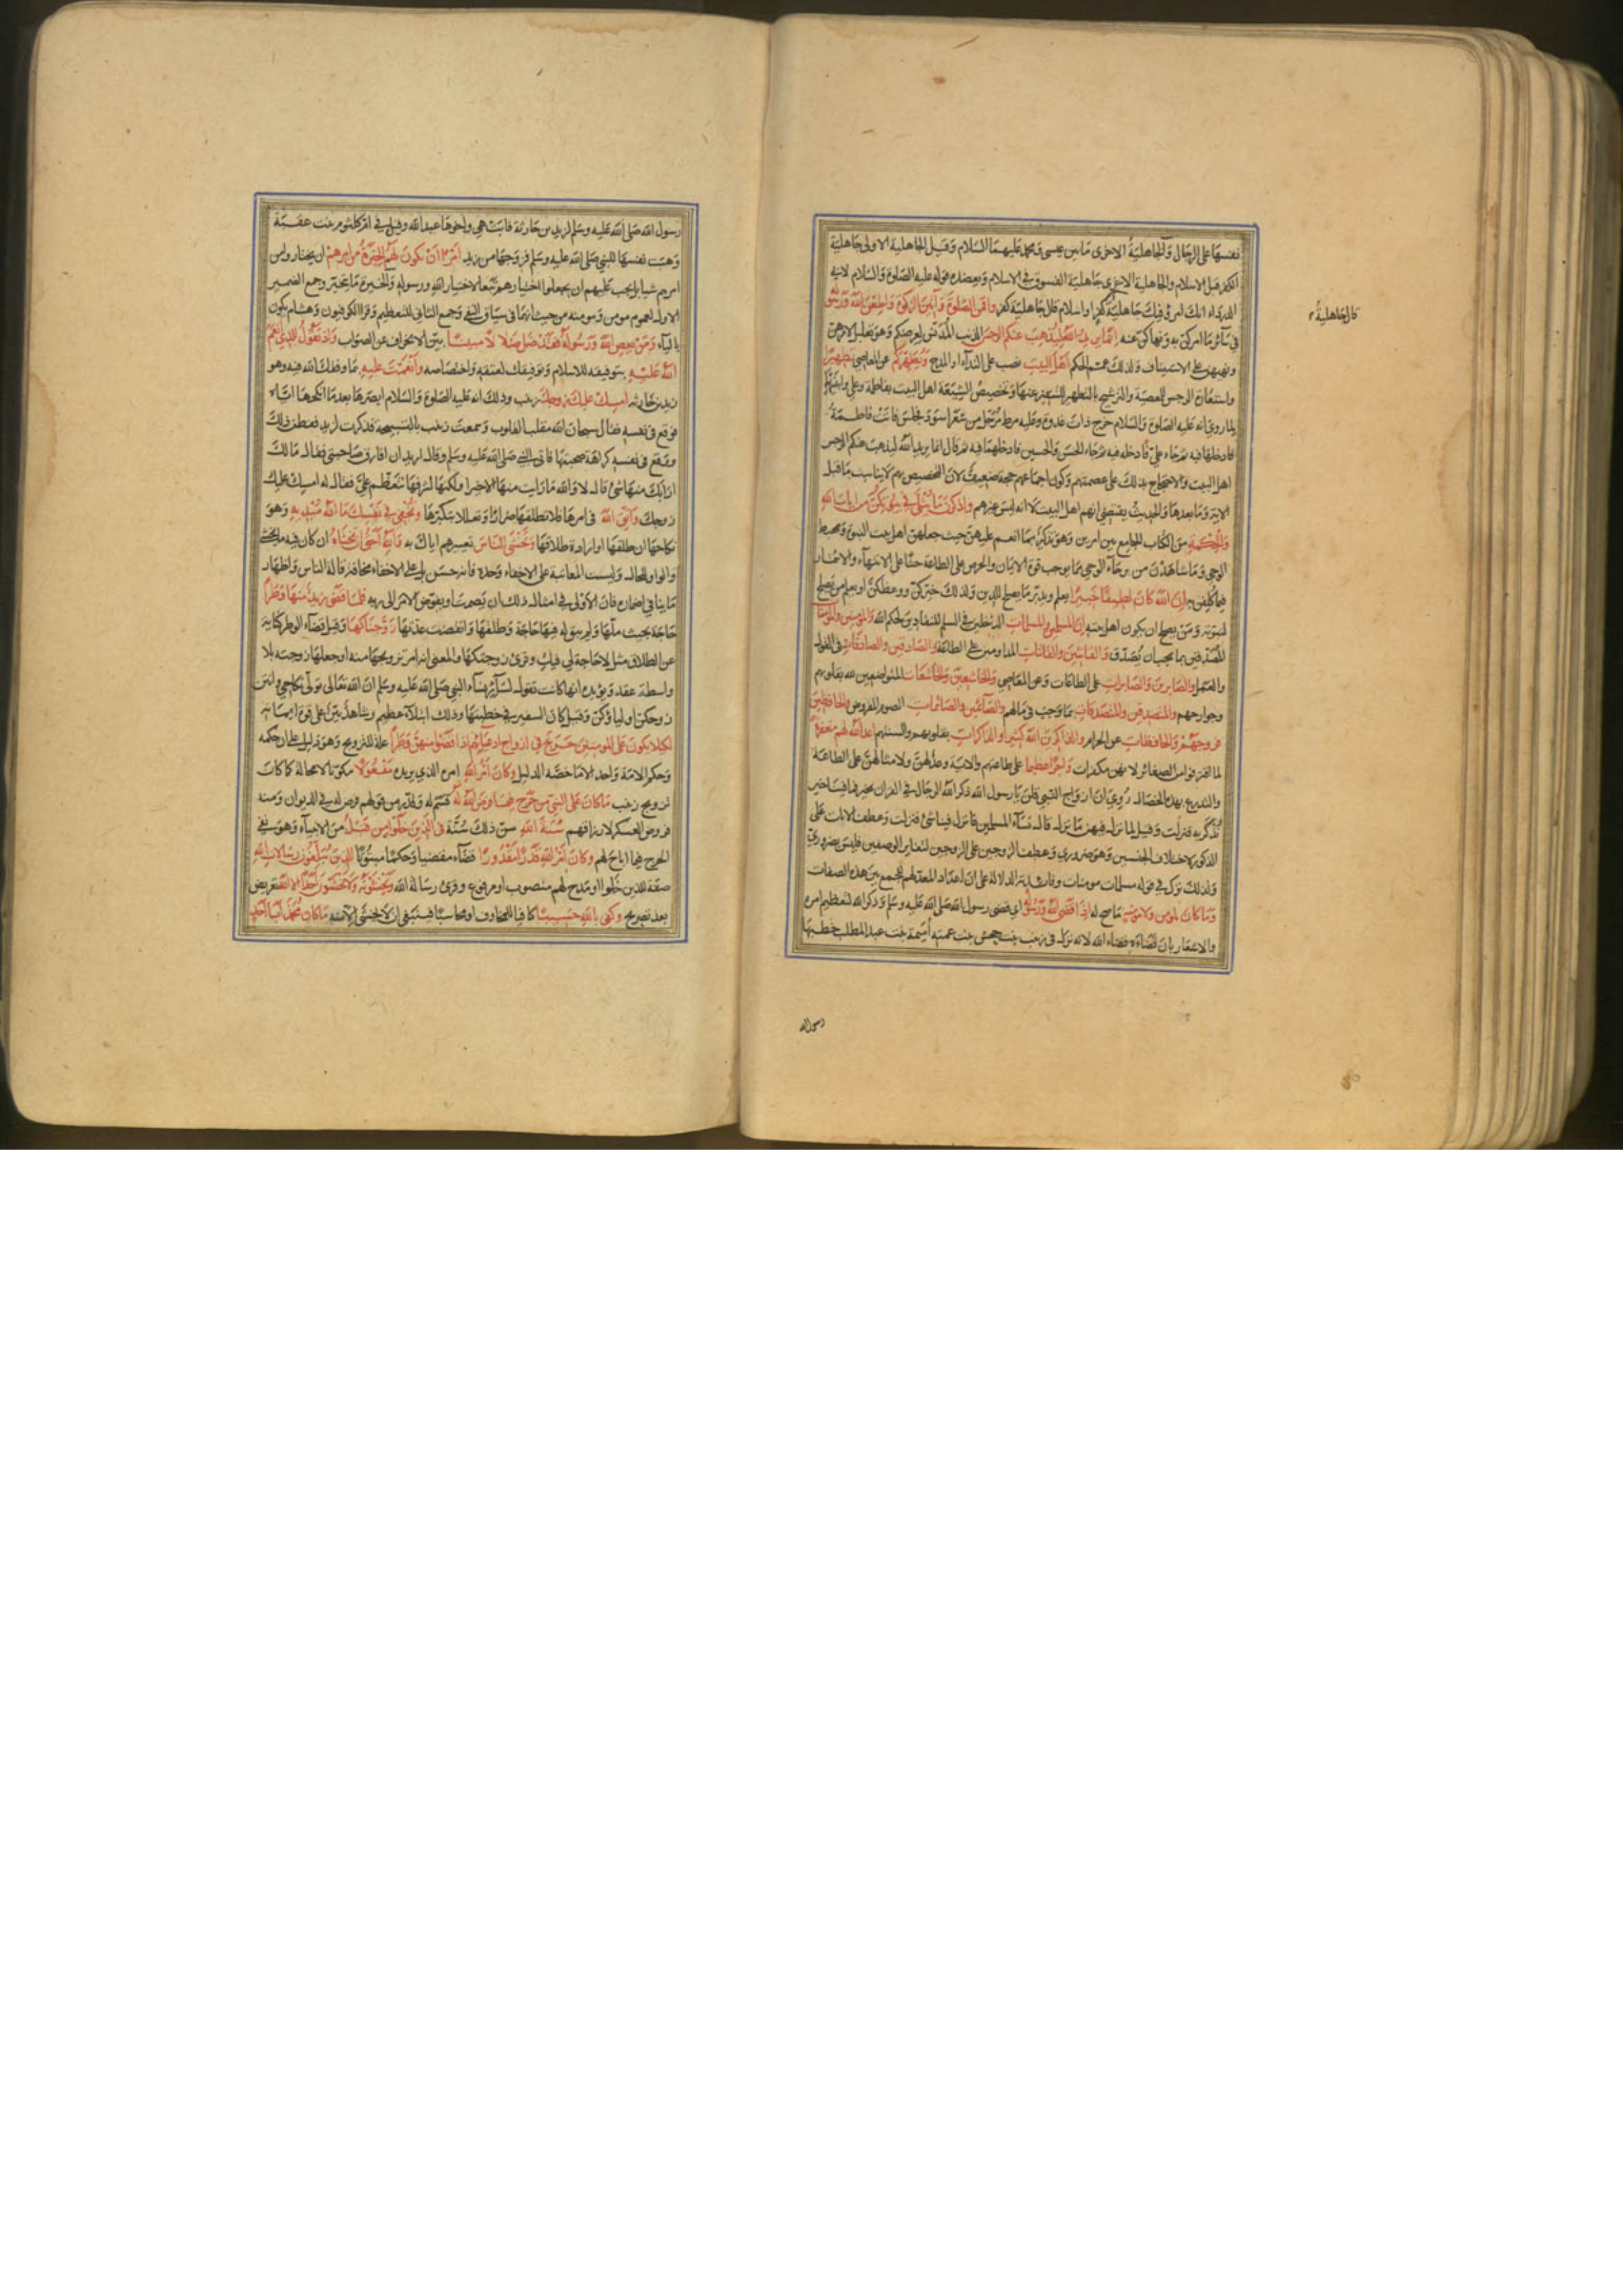 نفسها على الرجال والجاهلية الاخرى ما بين عيسى ومحمد عليهما السلام وقيل الجاهلية الاولى جاهلية
الكفر قبل الاسلام والجاهلية الاخرى جاهلية الفسوق في الاسلام ويعضده قوله عليه الصلوة والسلام لابي
الدرداء انك امرؤ فيك جاهلية كفر او اسلام قال جاهلية كفر واقمن الصلوة وآتين الزكوة واطعن الله ورسوله
في سائر ما امركن به ونهاكن عنه انما يريد الله ليذهب عنكم الرجس الذنب المدنس لعرضكم وهو تعليل لامرهن
ونهيهن على الاستيناف ولذلك عمم الحكم اهل البيت نصب على النداء او المدح ويطهركم عن المعاصي تطهيرا
واستعارة الرجس للمعصية والترشيح بالتطهير للتنفير عنها وتخصيص الشيعة اهل البيت بفاطمة وعلي وابنيهما
لما روي انه عليه الصلوة والسلام خرج ذات غدوة وعليه مرط مرحل من شعر اسود فجلس فاتت فاطمة
فادخلها فيه ثم جاء علي فادخله فيه ثم جاء الحسن والحسين فادخلهما فيه ثم قال انما يريد الله ليذهب عنكم الرجس
اهل البيت والاحتجاج بذلك على عصمتهم وكون اجماعهم حجة ضعيف لان التخصيص بهم لا يناسب ما قبل
الاية وما بعدها والحديث يقتضي انهم اهل البيت لا انه ليس غيرهم واذكرن ما يتلى في بيوتكن من ايات الله
والحكمة من الكتاب الجامع بين امرين وهو تذكير بما انعم عليهن حيث جعلهن اهل بيت النبوة ومهبط
الوحي وما شاهدن من برحاء الوحي مما يوجب قوة الايمان والحرص على الطاعة حثا على الانتهاء والائتمار
فيما كلفن به ان الله كان لطيفا خبيرا يعلم ويدبر ما يصلح للدين ولذلك خيركن ووعظكن او يعلم من يصلح
لنبوته ومن يصلح ان يكون اهل بيته ان المسلمين والمسلمات الداخلين في السلم المنقادين لحكم الله والمومنين والمومنات
المصدقين بما يجب ان يصدق والقانتين والقانتات المداومين على الطاعة والصادقين والصادقات في القول
والعمل والصابرين والصابرات على الطاعات وعن المعاصي والخاشعين والخاشعات المتواضعين لله بقلوبهم
وجوارحهم والمتصدقين والمتصدقات بما وجب في مالهم والصائمين والصائمات الصوم المفروض والحافظين
فروجهم والحافظات عن الحرام والذاكرين الله كثيرا والذاكرات بقلوبهم والسنتهم اعد الله لهم مغفرة
لما اقترفوا من الصغائر لانهن مكفرات واجرا عظيما على طاعتهم والاية وعد لهن ولامثالهن على الطاعة
والتدرع بهذه الخصال روي ان ازواج النبي قلن يا رسول الله ذكر الله الرجال في القران بخير فما فينا خير
نذكر به فنزلت وقيل لما نزل فيهن ما نزل قال نساء المسلمين فما نزل فينا شئ فنزلت وعطف الاناث على
الذكور لاختلاف الجنسين وهو ضروري وعطف الزوجين على الزوجين لتغاير الوصفين فليس بضروري
ولذلك ترك في قوله مسلمات مومنات وفائدته الدلالة على ان اعداد المعد لهم للجمع بين هذه الصفات
وما كان لمومن ولا مومنة ما صح له اذا قضى الله ورسوله اي قضى رسول الله صلى الله عليه وسلم وذكر الله لتعظيم امره
والاشعار بان قضاءه قضاء الله لانه نزل في زينب بنت جحش بنت عمته اميمة بنت عبد المطلب خطبها
كالجاهلية
رسول الله
رسول الله صلى الله عليه وسلم لزيد بن حارثة فابت هي واخوها عبد الله وقيل في ام كلثوم بنت عقبة
وهبت نفسها للنبي صلى الله عليه وسلم فزوجها من زيد امرا ان تكون لهم الخيرة من امرهم ان يختاروا من
امرهم شيا بل يجب عليهم ان يجعلوا اختيارهم تبعا لاختيار الله ورسوله والخيرة ما يتخير وجمع الضمير
الاول لعموم مومن ومومنة من حيث انهما في سياق النفي وجمع الثاني للتعظيم وقرا الكوفيون وهشام يكون
بالياء ومن يعص الله ورسوله فقد ضل ضلالا مبينا بين الانحراف عن الصواب واذ تقول للذي انعم
الله عليه بتوفيقه للاسلام وتوفيقك لعتقه واختصاصه وانعمت عليه بما وفقك الله فيه وهو
زيد بن حارثة امسك عليك زوجك زينب وذلك انه عليه الصلوة والسلام ابصرها بعد ما انكحها اياه
فوقع في نفسه فقال سبحان الله مقلب القلوب وسمعت زينب بالتسبيحة فذكرت لزيد ففطن ذلك
ووقع في نفسه كراهة صحبتها فاتى النبي صلى الله عليه وسلم وقال اريد ان افارق صاحبتي فقال ما لك
ارابك منها شئ قال لا والله ما رايت منها الا خيرا ولكنها لشرفها تتعظم علي فقال له امسك عليك
زوجك واتق الله في امرها فلا تطلقها ضرارا وتعللا بتكبرها وتخفي في نفسك ما الله مبديه وهو
نكاحها ان طلقها او ارادة طلاقها وتخشى الناس تعييرهم اياك به والله احق ان تخشاه ان كان فيه ما يخشى
والواو للحال وليست المعاتبة على الاخفاء وحده فانه حسن بل على الاخفاء مخافة قالة الناس واظهار
ما ينافي اضماره فان الاولى في امثال ذلك ان يصمت او يفوض الامر الى ربه فلما قضى زيد منها وطرا
حاجة بحيث ملها ولم يبق له فيها حاجة وطلقها وانقضت عدتها زوجناكها وقيل قضاء الوطر كناية
عن الطلاق مثل لا حاجة لي فيك وقرئ زوجتكها والمعنى انه امر بتزويجها منه او جعلها زوجته بلا
واسطة عقد ويؤيده انها كانت تقول لسائر نساء النبي صلى الله عليه وسلم ان الله تعالى تولى نكاحي وانتن
زوجكن اولياؤكن وقيل كان السفير في خطبتها وذلك ابتلاء عظيم وشاهد بين على قوة ايمانه
لكيلا يكون على المومنين حرج في ازواج ادعيائهم اذا قضوا منهن وطرا علة للتزويج وهو دليل على ان حكمه
وحكم الامة واحد الا ما خصه الدليل وكان امر الله امره الذي يريده مفعولا مكونا لا محالة كما كان
تزويج زينب ما كان على النبي من حرج فيما فرض الله له قسم له وقدر من قولهم فرض له في الديوان ومنه
فروض العسكر لارزاقهم سنة الله سن ذلك سنة في الذين خلوا من قبل من الانبياء وهو نفي
الحرج فيما اباح لهم وكان امر الله قدرا مقدورا قضاء مقضيا وحكما مبتوتا الذين يبلغون رسالات الله
صفة للذين خلوا او مدح لهم منصوب او مرفوع وقرئ رسالة الله ويخشونه ولا يخشون احدا الا الله تعريض
بعد تصريح وكفى بالله حسيبا كافيا للمخاوف او محاسبا فينبغي ان لا يخشى الا منه ما كان محمد ابا احد